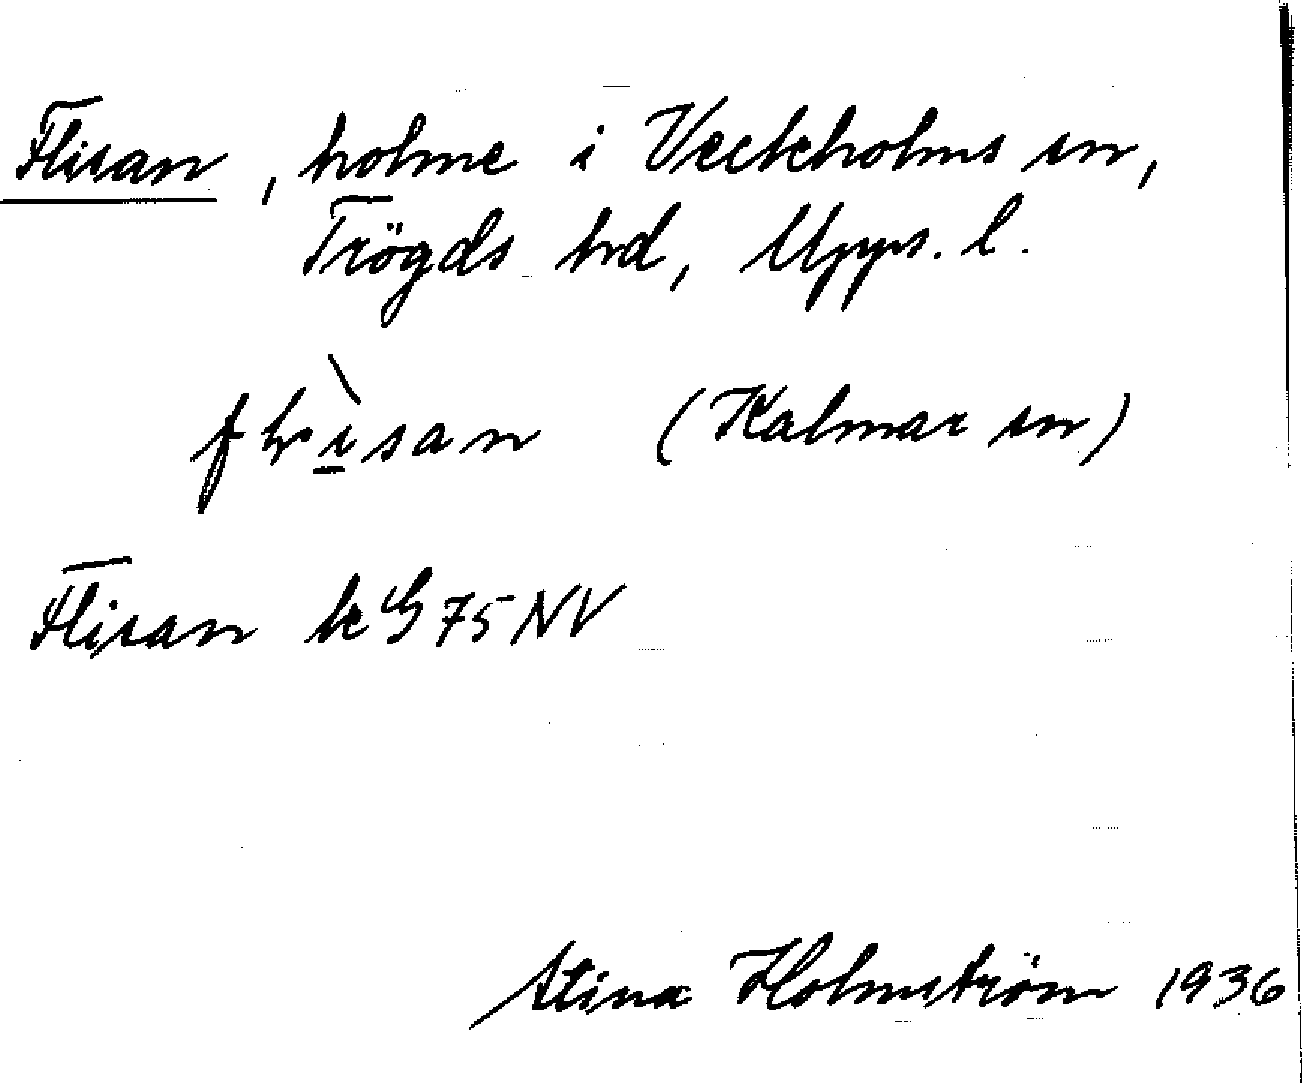 Flisan, holme i Veckholms sn,
Trögds hd, Upps. l.
(Kalmar sn)
Flisan kG 75 NV
Stina Holmström 1936